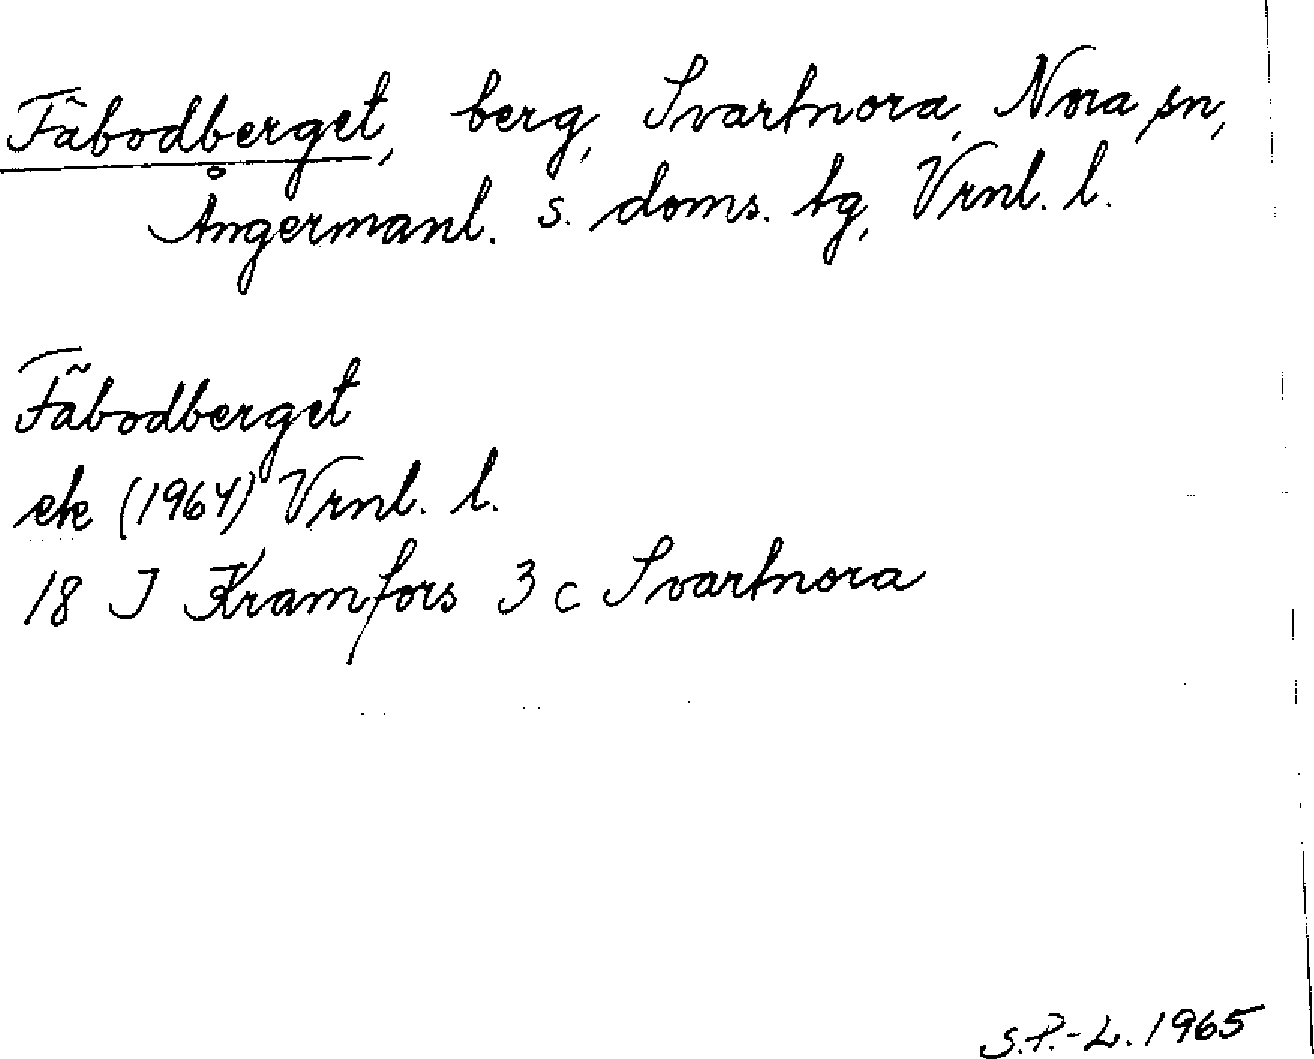 Fäbodberget, berg, Svartnora, Nora sn,
Ångermanl. s. doms. tg, Vrnl. l.
Fäbodberget
ek (1964) Vrnl. l.
18 J Kramfors 3 c Svartnora
S.P.-L. 1965